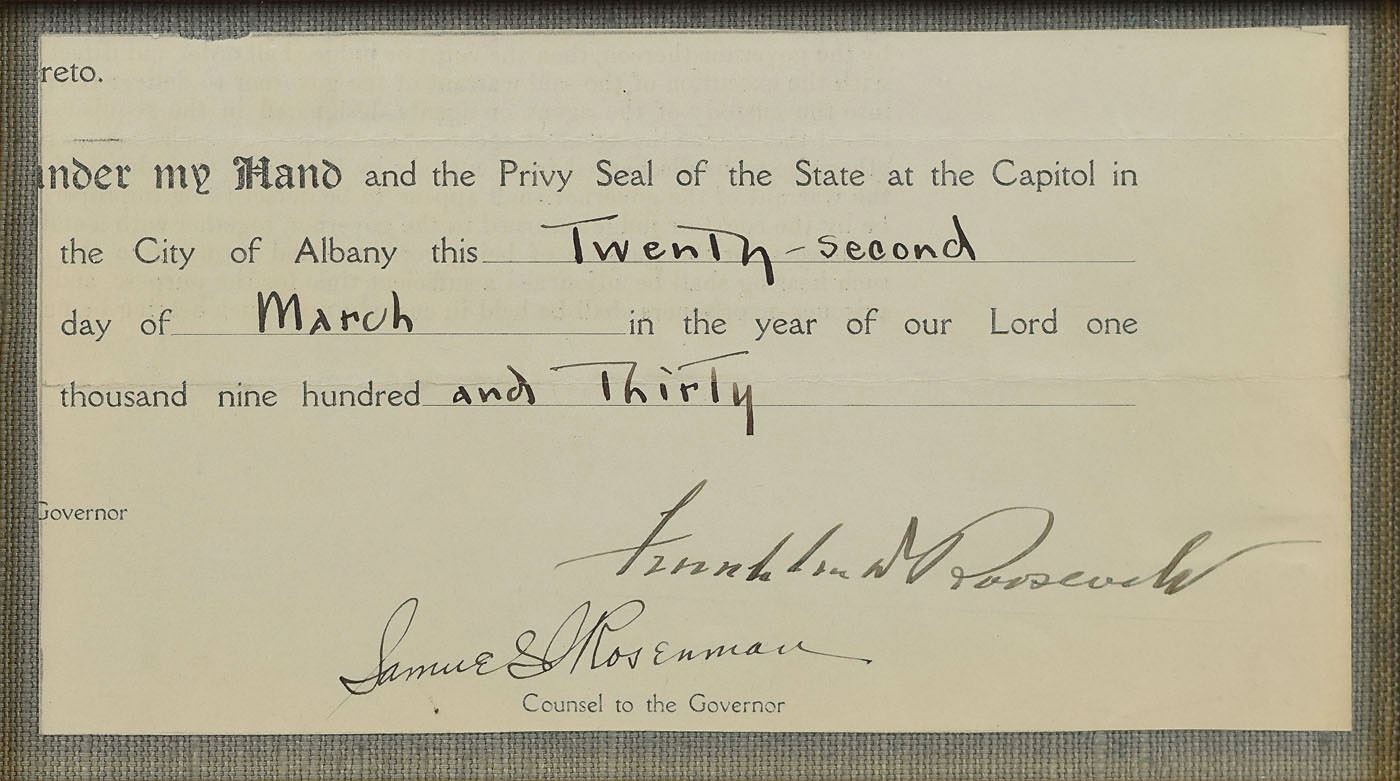 reto.
under my Hand and the Privy Seal of the State at the Capitol in
the City of Albany this Twenty-second
day of March in the year of our Lord one
thousand nine hundred and Thirty
Governor
Franklin D Roosevelt
Samuel I Rosenman
Counsel to the Governor